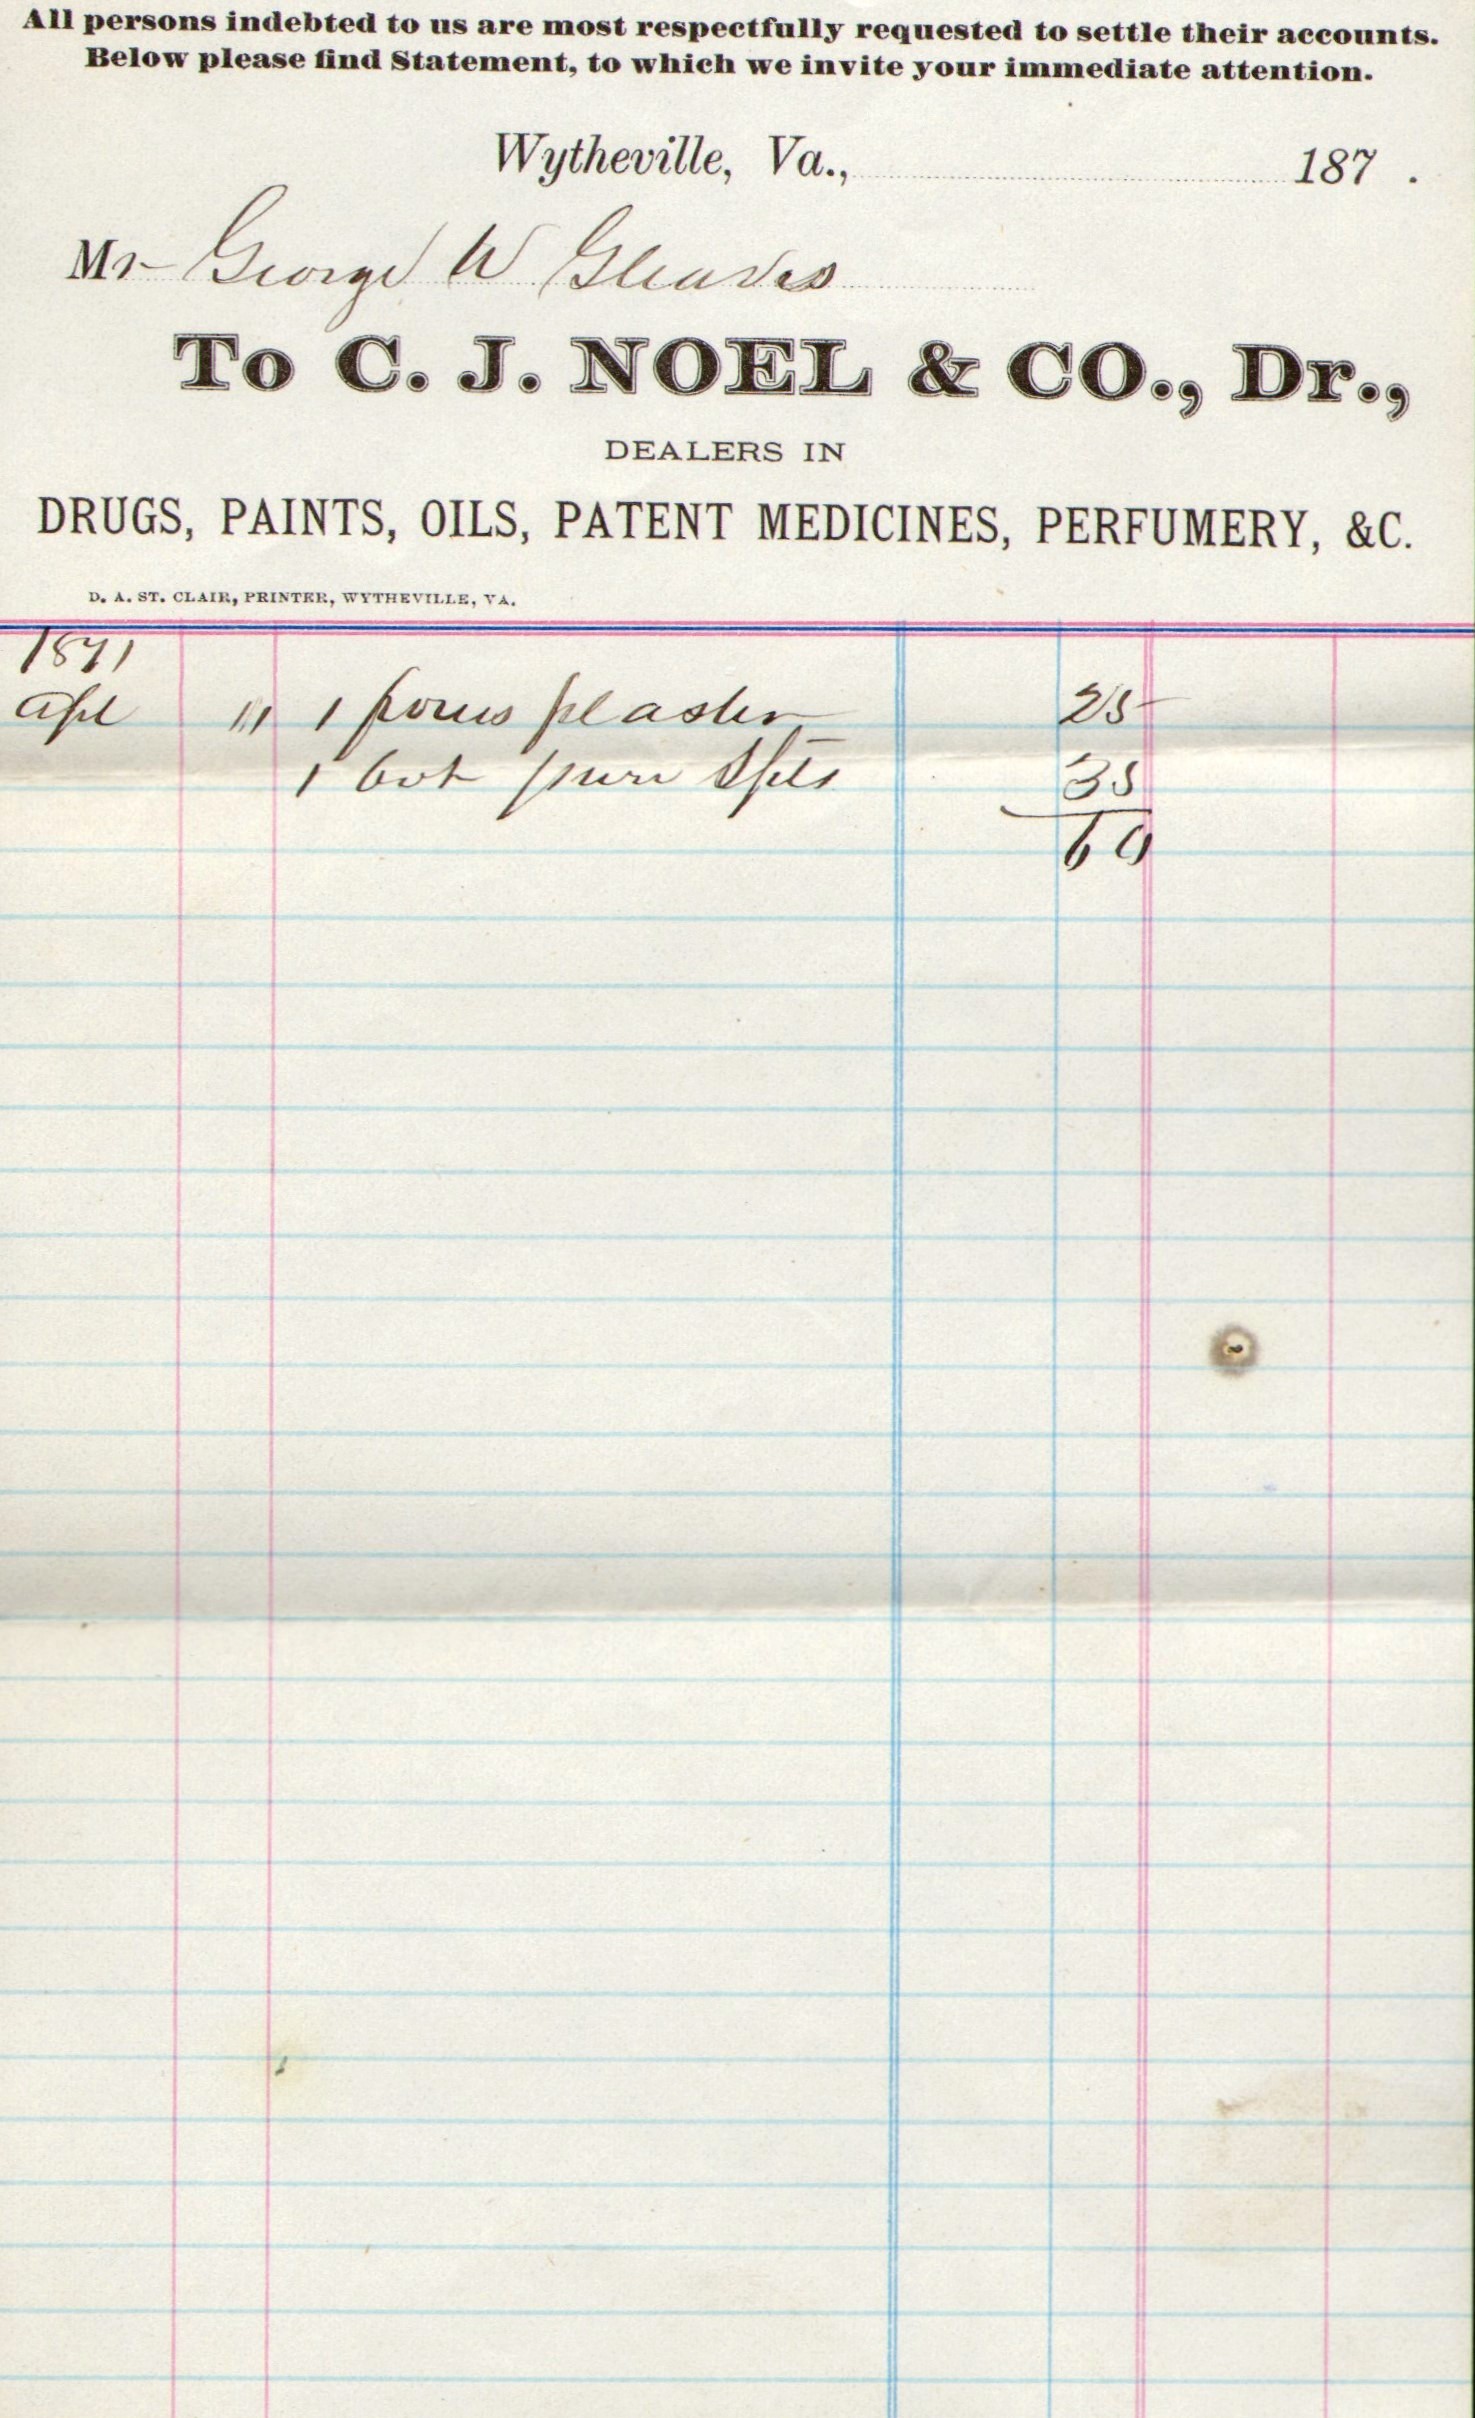 All persons indebted to us are most respectfully requested to settle their accounts.
Below please find Statement, to which we invite your immediate attention.
Wytheville, Va., 187 .
Mr George W Gleaves
To C. J. NOEL & CO., Dr.,
DEALERS IN
DRUGS, PAINTS, OILS, PATENT MEDICINES, PERFUMERY, &C.
D. A. ST. CLAIR, PRINTER, WYTHEVILLE, VA.
1871
Apl 11 1 porus plaster 25
1 bot 35
60